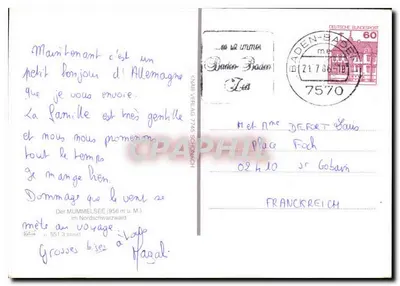 Maintenant c'est un
petit bonjour d'Allemagne
que je vous envoie.
La famille est très gentille
et nous nous promenons
tout le temps
Je mange bien.
Dommage que le vent se
Der MUMMELSEE (1036 m ü. M.)
im Nordschwarzwald
mête au voyage.
Grosses bises à
Magali
DEUTSCHE BUNDESPOST
60
BADEN-BADEN
21.7.86-18
7570
Baden-Baden
CAPHIR
Met Mme DEFORT Louis
Place Foch
02410 St Gobain
FRANKREICH